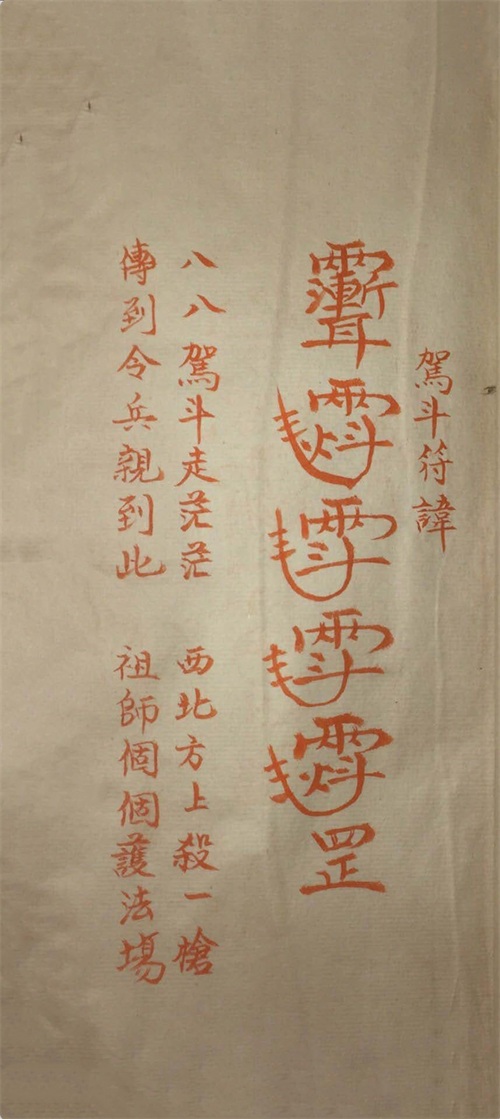 駕斗符諱
罡
八八駕斗走茫茫 西北方上殺一槍
傳到令兵親到此 祖師個個護法場